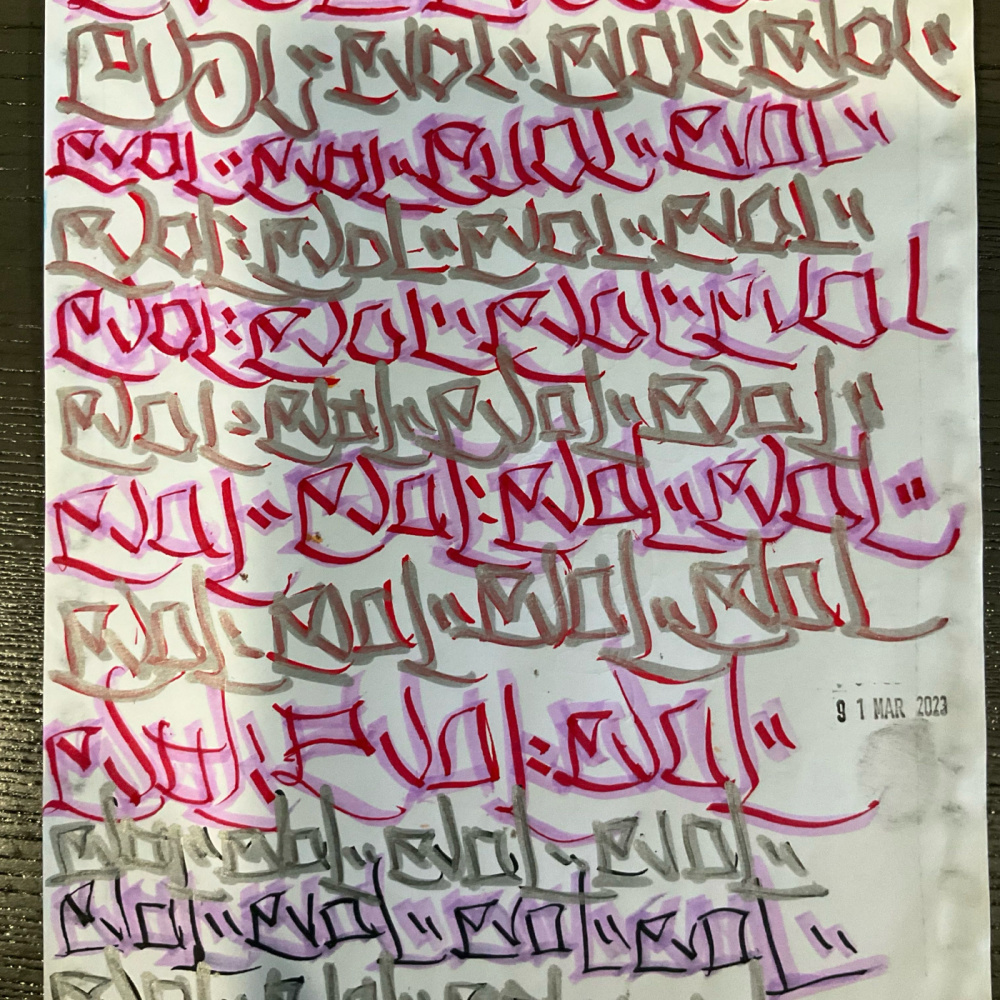 evol" evol" evol" evol"
evol: evol" evol" evol"
evol: evol" evol" evol"
evol: evol" evol: evol
evol: evol" evol" evol"
evol" evol: evol" evol"
evol: evol" evol" evol
9 1 MAR 2023
Evol: evol"
evol" evol" evol" evol"
evol" evol" evol" evol"